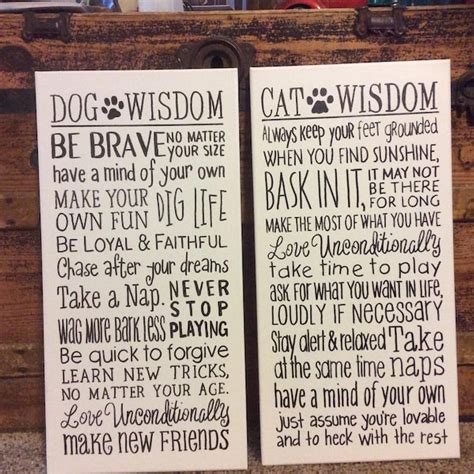 DOG WISDOM
BE BRAVE NO MATTER YOUR SIZE
have a mind of your own
MAKE YOUR OWN FUN DIG LIFE
BE LOYAL & FAITHFUL
Chase after your dreams
Take a Nap. NEVER STOP PLAYING
WAG MORE BARK LESS
Be quick to forgive
LEARN NEW TRICKS,
NO MATTER YOUR AGE.
Love Unconditionally
make new FRIENDS
CAT WISDOM
Always keep your feet grounded
WHEN YOU FIND SUNSHINE,
BASK IN IT, IT MAY NOT BE THERE FOR LONG
MAKE THE MOST OF WHAT YOU HAVE
Love Unconditionally
take time to play
ASK FOR WHAT YOU WANT IN LIFE,
LOUDLY IF NECESSARY
Stay alert & relaxed Take
at the same time naps
have a mind of your own
just assume you're lovable
and to heck with the rest